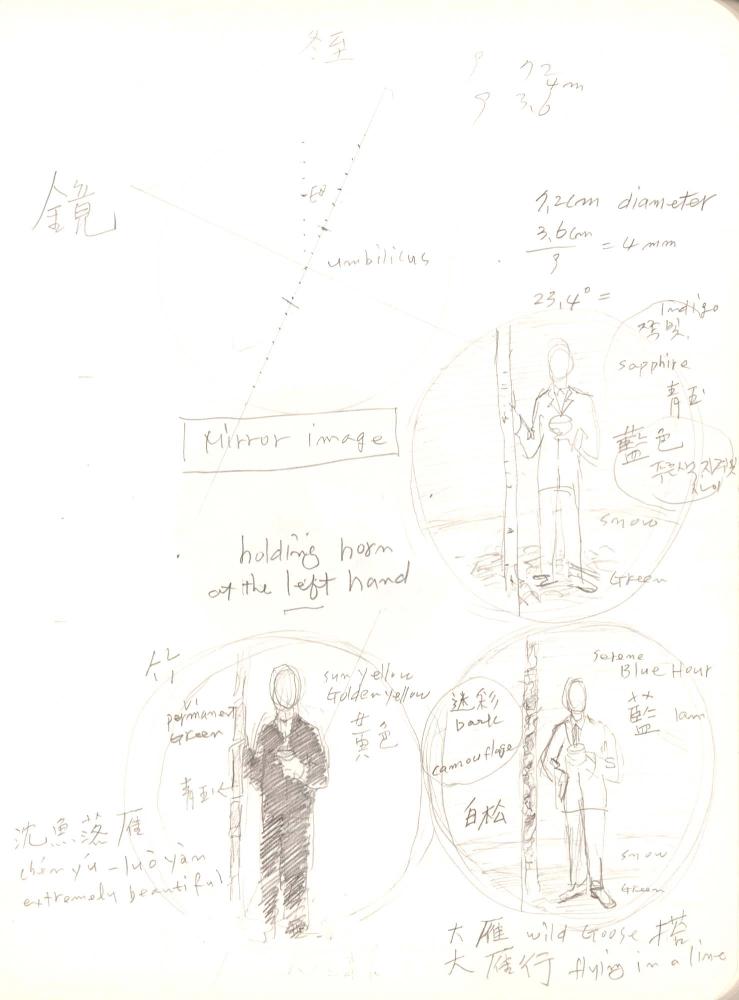 冬至
9 72
4m
9 3,6
鏡
7,2cm diameter
3,6cm
9
= 4mm
23,4° =
umbilicus
Indigo
쪽빛
sapphire
青玉
藍色
Mirror image
snow
holding horn
at the left hand
Green
竹
permanent
Green
sun yellow
Golden yellow
黄色
serene
Blue Hour
迷彩
bark
camouflage
藍 lam
青玉
白松
沈魚落雁
chén yú - luò yàn
extremely beautiful
snow
Green
大雁 wild Goose 塔
大雁行 flying in a line